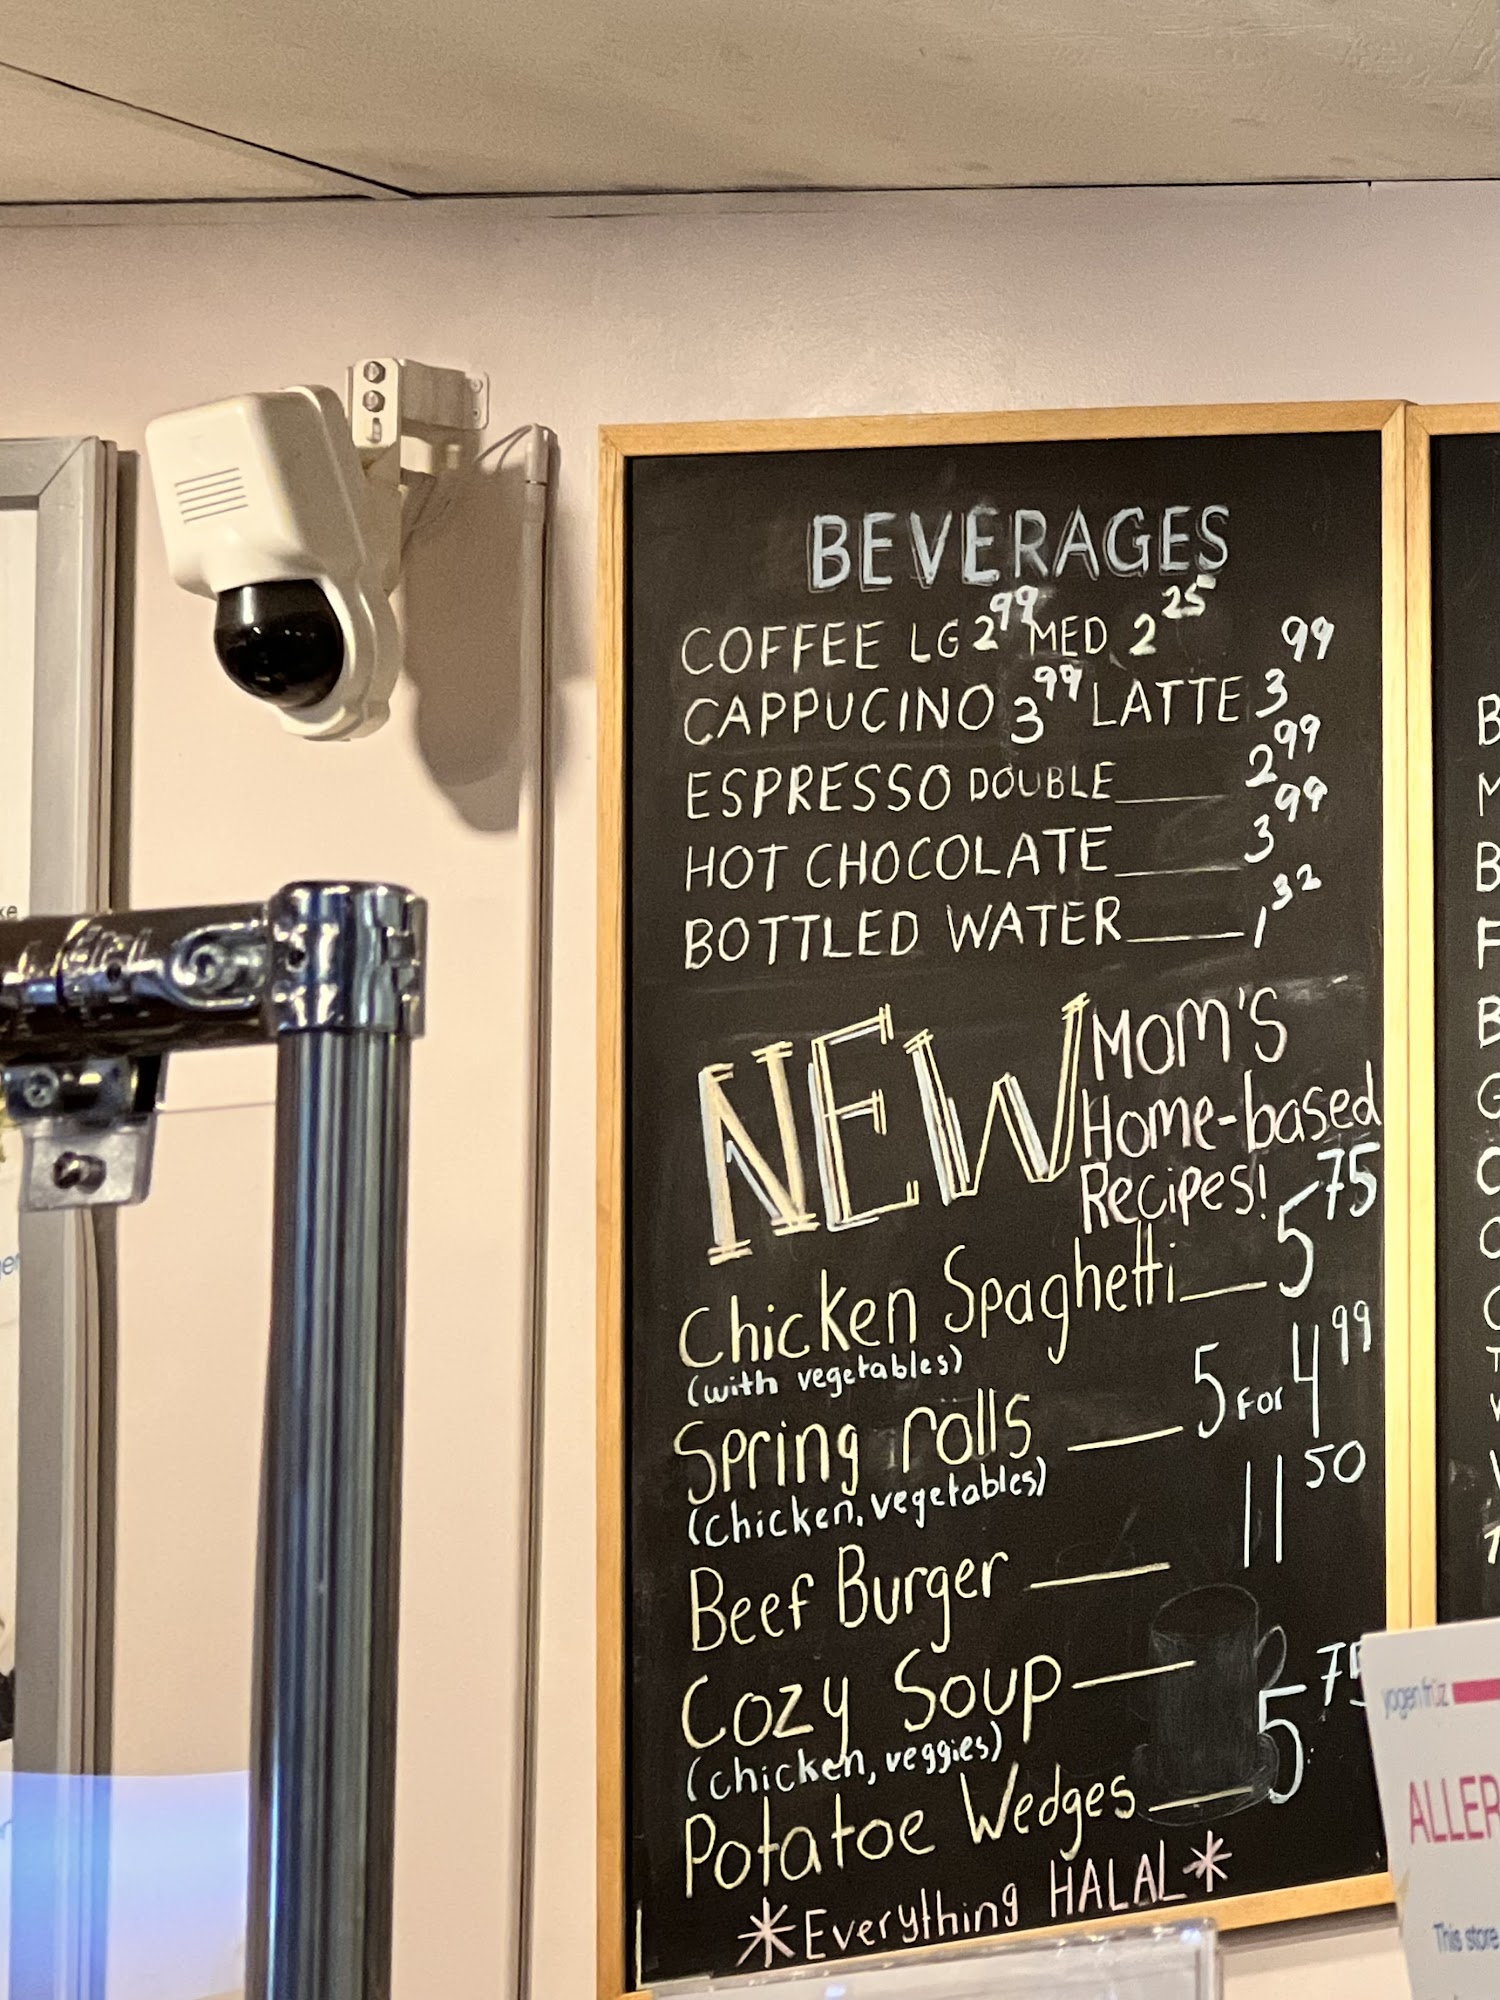 BEVERAGES
COFFEE LG 2.99 MED 2.25
CAPPUCINO 3.99 LATTE 3.99
ESPRESSO DOUBLE 2.99
HOT CHOCOLATE 3.99
BOTTLED WATER 1.32
NEW
MOM'S
Home-based
Recipes!
Chicken Spaghetti 5.75
(with vegetables)
Spring rolls 5 For 4.99
(chicken, vegetables)
Beef Burger 11.50
Cozy Soup
(chicken, veggies)
Potatoe Wedges 5.75
*Everything HALAL*
yogen früz
ALLER
This store